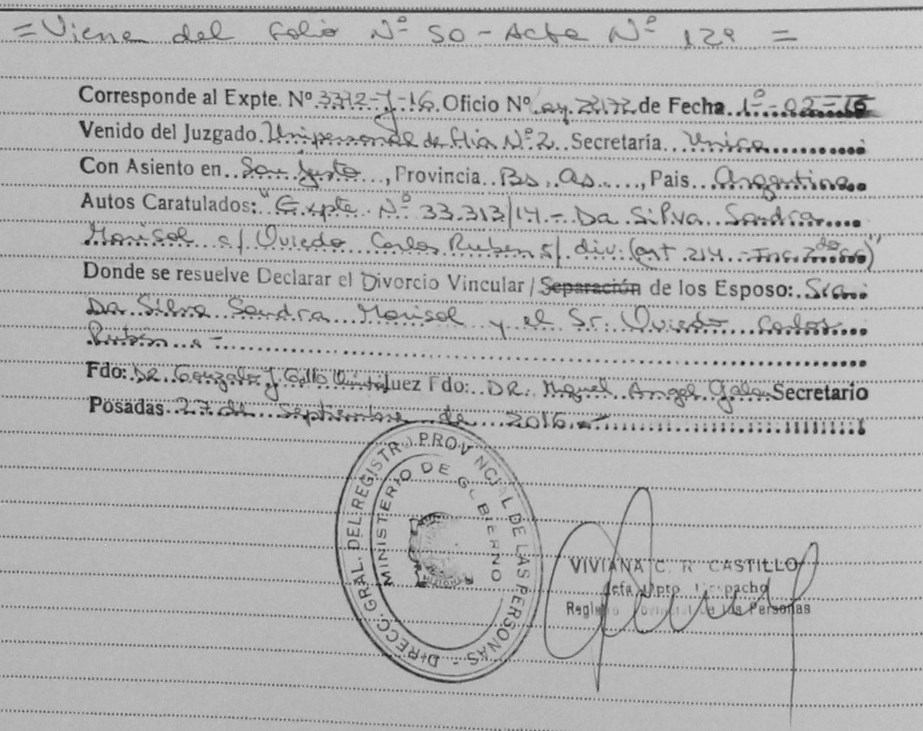 = Viene del Folio Nº 50 - Acta Nº 129 =
Corresponde al Expte. Nº 3372-J-16. Oficio Nº ay. 23172 de Fecha. 1º-02-16
Venido del Juzgado. Unipersonal de flia Nº 2. Secretaría. Unica
Con Asiento en. San Justo, Provincia. Bs. As., Pais. Argentina
Autos Caratulados: "Expte. Nº 33.313/14 - Da Silva Sandra
Marisol c/ Oviedo Carlos Ruben s/. div. (art 214 - Inc. 2do CC)"
Donde se resuelve Declarar el Divorcio Vincular / Separación de los Esposo: Sra.
Da Silva Sandra Marisol y el Sr. Oviedo Carlos
Rubén.-
Fdo: DR. Gonzalo J. Juez Fdo: DR. Miguel Angel Secretario
Posadas. 27 de Septiembre de 2016.-
DIRECC. GRAL. DEL REGISTRO PROVINCIAL DE LAS PERSONAS -
MINISTERIO DE GOBIERNO
VIVIANA C. R CASTILLO
Jefa Dpto. Despacho
Registro Provincial de las Personas